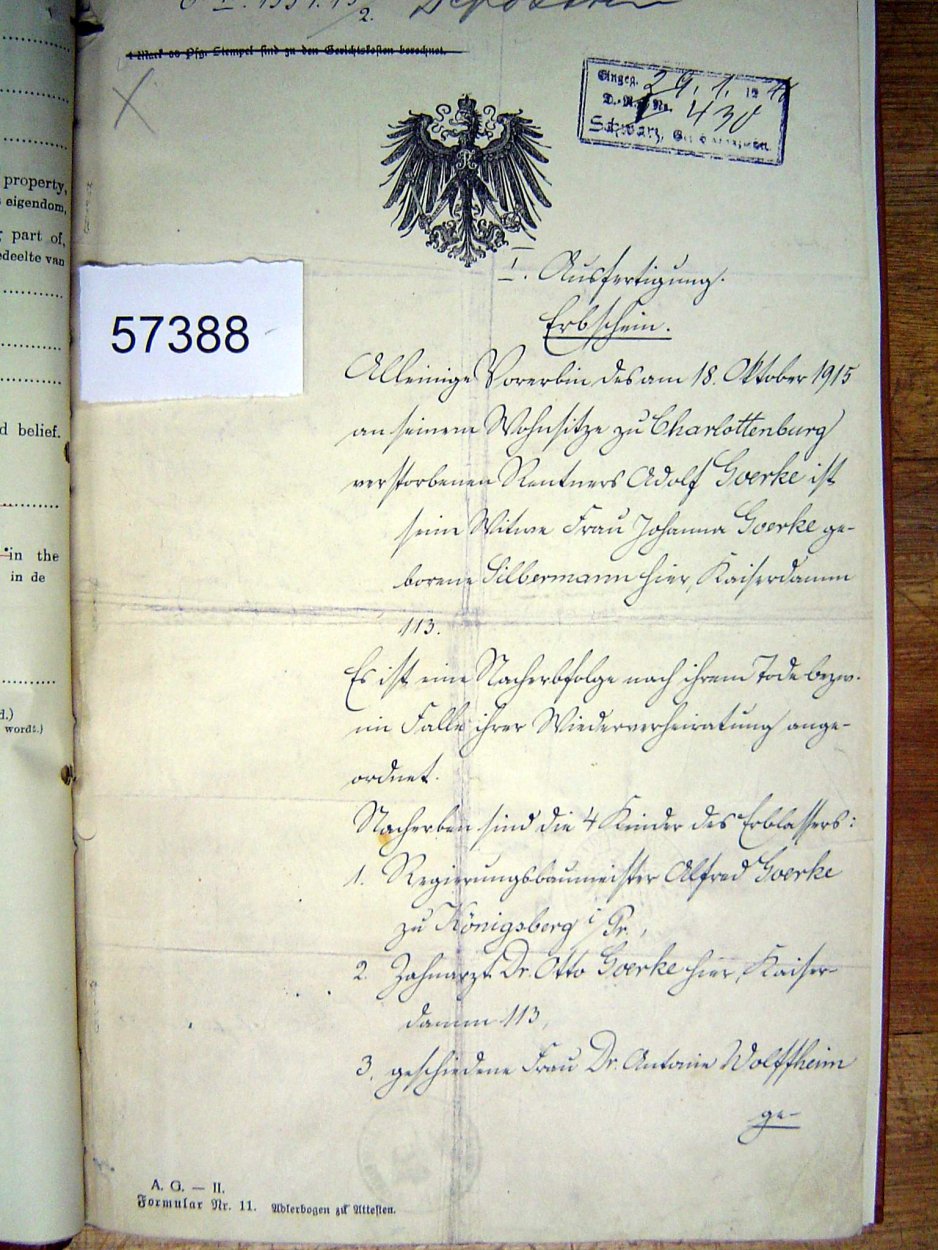 2.
1 Mark 00 Pfg. Stempel sind zu den Gerichtskosten berechnet.
Eingeg. 29. 1. 12
D.-R. No. 430
Schwarz,
property,
eigendom,
part of,
gedeelte van
57388
I. Ausfertigung.
Erbschein.
Alleinige Vorerbin des am 18. Oktober 1915
an seinem Wohnsitze zu Charlottenburg
verstorbenen Rentners Adolf Goerke ist
seine Witwe Frau Johanna Goerke ge-
borene Silbermann hier, Kaiserdamm
113.
d belief.
in the
in de
Es ist eine Nacherbfolge nach ihrem Tode bezw.
im Falle ihrer Wiederverheiratung ange-
ordnet.
d.)
wordt.)
Nacherben sind die 4 Kinder des Erblassers:
1. Regierungsbaumeister Alfred Goerke
zu Königsberg i/Pr.,
2. Zahnarzt Dr. Otto Goerke hier, Kaiser-
damm 113,
3. geschiedene Frau Dr. Antonie Wolffheim
ge-
A. G. — II.
Formular Nr. 11. Adlerbogen zu Attesten.